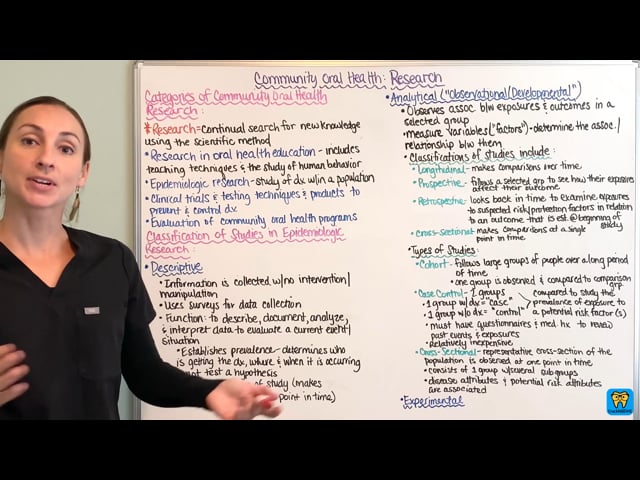 Community Oral Health: Research
Categories of Community Oral Health
Research:
*Research=Continual search for new knowledge
using the scientific method
•Research in oral health education - includes
teaching techniques & the study of human behavior
•Epidemiologic research-study of dx w/in a population
•Clinical trials & testing techniques & products to
prevent & control dx
•Evaluation of community oral health programs
Classification of Studies in Epidemiologic
Research:
•Descriptive
•Information is collected w/no intervention/
manipulation
•Uses surveys for data collection
•Function: to describe, document, analyze,
& interpret data to evaluate a current event/
situation
•Establishes prevalence-determines who
is getting the dx, where & when it is occurring
not test a hypothesis
of study (makes
point in time)
•Analytical ("Observational/Developmental")
•Observes assoc. b/w exposures & outcomes in a
selected group
•measure variables ("factors") - determine the assoc./
relationship b/w them
•Classifications of studies include:
•Longitudinal - makes comparisons over time
•Prospective - follows a selected grp to see how their exposures
affect their outcome
•Retrospective - looks back in time to examine exposures
to suspected risk/protection factors in relation
to an outcome that is est. @ beginning of
study
•Cross-sectional - makes comparisons at a single
point in time
•Types of Studies:
•Cohort - follows large groups of people over a long period
of time
•one group is observed & compared to comparison
grp.
•Case Control - 2 groups
•1 group w/dx = "case"
•1 group w/o dx = "control"
compared to study the
prevalence of exposure to
a potential risk factor(s)
•must have questionnaires & med. hx to review
past events & exposures
•relatively inexpensive
•Cross-Sectional - representative cross-section of the
population is observed at one point in time
•consists of 1 group w/several subgroups
•disease attributes & potential risk attributes
are associated
•Experimental